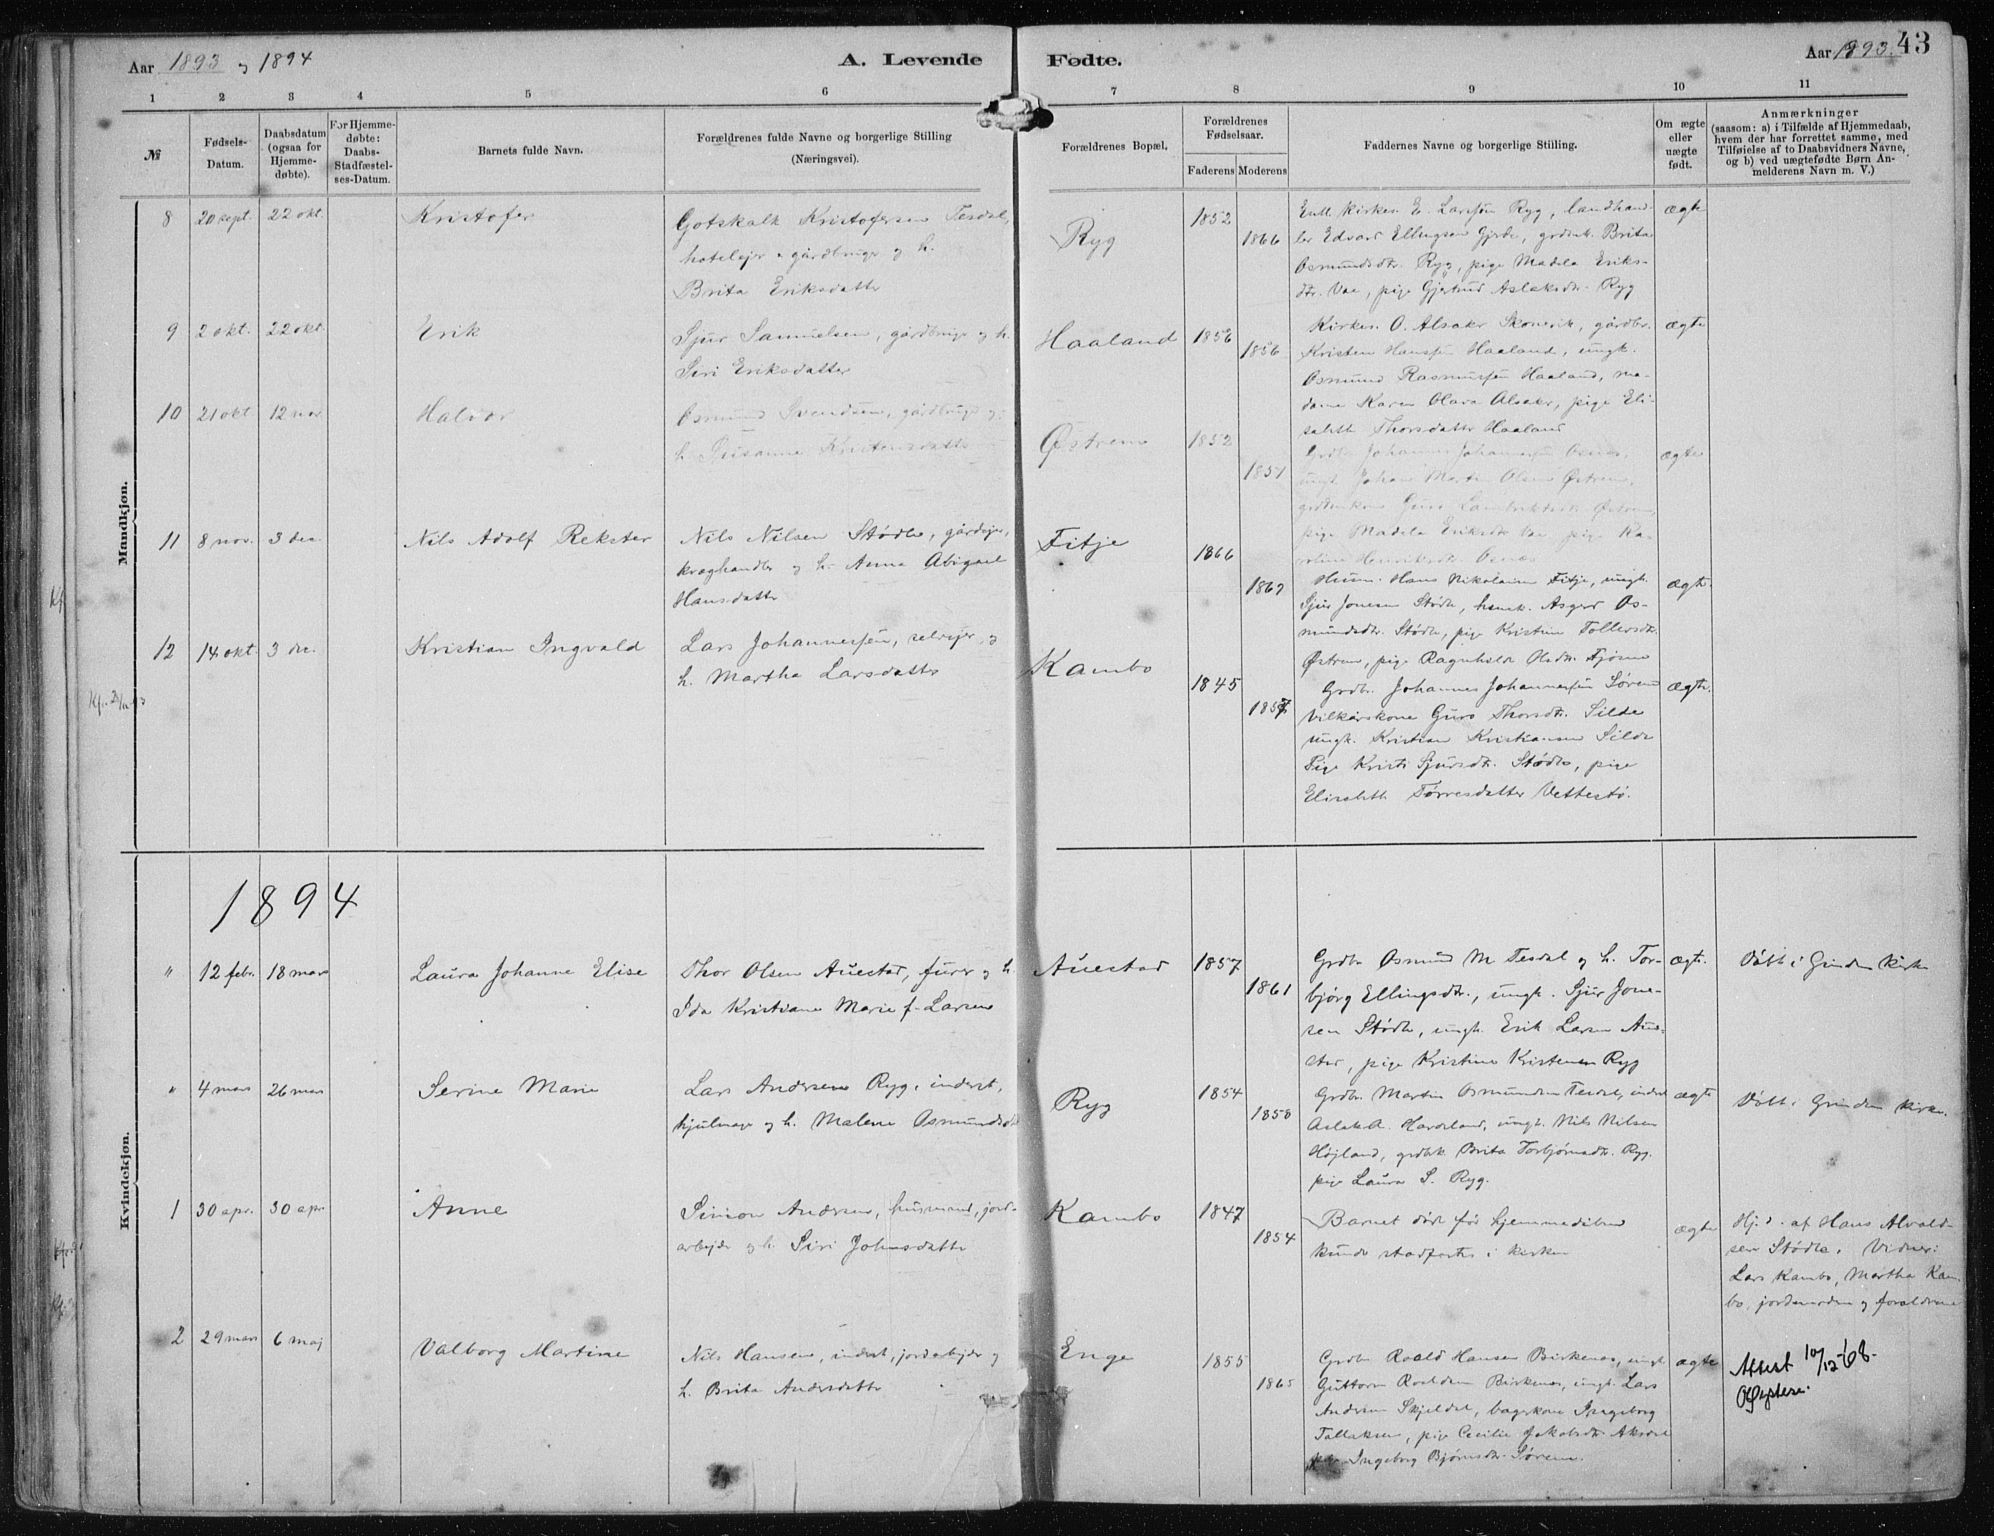 Aar 1893 og 1894
A. Levende
Fødte.
Aar 1893.
43
1 2 3 4 5 6 7 8 9 10 11
№
Fødsels-
Datum.
Daabsdatum
(ogsaa for
Hjemme-
døbte).
For Hjemme-
døbte:
Daabs-
Stadfæstel-
ses-Datum.
Barnets fulde Navn.
Forældrenes fulde Navne og borgerlige Stilling
(Næringsvei).
Forældrenes Bopæl.
Forældrenes
Fødselsaar.
Faderens Moderens
Faddernes Navne og borgerlige Stilling.
Om ægte
eller
uægte
født.
Anmærkninger
(saasom: a) i Tilfælde af Hjemmedaab,
hvem der har forrettet samme, med
Tilføielse af to Daabsvidners Navne,
og b) ved uægtefødte Børn An-
melderens Navn m. V.)
Mandkjøn.
8 20 sept. 22 okt. Kristofer
Gotskalk Kristofersen Tesdal,
hotelejer & gårdbruger og h.
Brita Eriksdatter
Ryg
1852
1866
Enkem. kirkes. E. Larssen Ryg, landhand-
ler Edvard Ellingsen Gjerde, grdmk. Brita
Osmundsdtr. Ryg, pige Madela Eriks-
dtr. Vae, pige Gjertrud Aslaksdtr. Ryg
ægte
9 2 okt. 22 okt. Erik
Sjur Samuelsen, gårdbruger og h.
Siri Eriksdatter
Haaland
1856
1856
Kirkes. O. Alsaker Skonevik, gårdbr.
Kristen Hanssen Haaland, ungk.
Osmund Rasmussen Haaland, ma-
dame Karen Olava Alsaker, pige Eli-
sabeth Thorsdatter Haaland
ægte
10 21 okt 12 nov Halvor
Osmund Svendsen, gårdbruger og
h. Kristensdatter
Østrem
1852
1851
Grdbr. Johannes Johannessen Osnes,
ungk. Johan Martin Olsen Østrem,
grdbrkone Guro Lambriktsdtr. Østrem,
pige Madela Eriksdtr Vae, pige Ka-
roline Henriksdtr. Osnes
ægte
11 8 nov. 3 dec. Nils Adolf Rekster
Nils Nilsen Stødle, gårdejer,
kræghandler og h. Anna Abigael
Hansdatter
Fitje
1866
1869
Husm. Hans Nikolaisen Fitje, ungk.
Sjur Jonesen Stødle, husmk. Asgerd Os-
mundsdtr. Stødle, pige Kristine Tollevsdtr.
Østrem, pige Ragnhild Olsdtr. Fjøsne
ægte.
12 14 okt. 3 dec. Kristian Ingvald
Lars Johannessen, selvejer og
h. Martha Larsdatter
Kambo
1845
1857
Grdbr. Johannes Johannessen Sørem
Vilkårskone Guro Thorsdtr. Silde
ungk. Kristian Kristiansen Silde
Pige Kristi Sjursdtr. Stødle, pige
Elisabeth Tørresdatter Vettestø.
ægte.
1894
Kvindekjøn.
" 12 febr. 18 mars Laura Johanne Elise
Thor Olsen Auestad, furer og h.
Ida Kristiane Marie f. Larsen
Auestad
1857
1861
Grdbr Osmund M Tesdal og h. Tor-
bjørg Ellingsdtr., ungk. Sjur Jone-
sen Stødle, ungk. Erik Larsen Aue-
stad, pige Kristine Kristensen Ryg
ægte.
Døbt i Grinden kirke
" 4 mars 26 mars Serine Marie
Lars Andersen Ryg, inderst,
hjulmager og h. Malene Osmundsdtr
Ryg
1854
1858
Grdbr. Martin Osmundsen Tesdal, inderst
Aslak A. Hardeland, ungk. Nils Nilsen
Højland, grdbk. Brita Torbjørnsdtr. Ryg.
pige Laura S. Ryg.
ægte
Døbt i Grinden kirke.
1 30 apr. 30 apr Anne
Simon Andersen, husmand, jord-
arbejder og h. Siri Johnsdatter
Kambo
1847
1854
Barnet død før hjemmedåben
kunde stadfæstes i kirken
ægte
Hj.d. af Hans Alvald-
sen Stødle. Vidner:
Lars Kambo, Martha Kam-
bo, jordemoderen og forældrene
2 29 mars 6 maj Valborg Martine
Nils Hansen, inderst, jordarbejder og
h. Brita Andersdatter
Enge
1855
1865
Grdbr Roald Hansen Birkenes, ungk
Guttorm Roaldsen Birkenes, ungk. Lars
Andersen Skjeldal, bagerkone Ingeborg
Tollaksen, pige Cecilie Jakobsdtr. Aksdal
pige Ingeborg Bjørnsdtr. Sørem.
ægte
Attest 10/12-68.